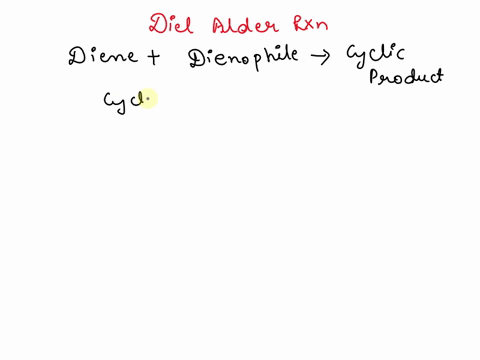 Diel Alder Rxn
Diene + Dienophile → Cyclic Product
Cycl